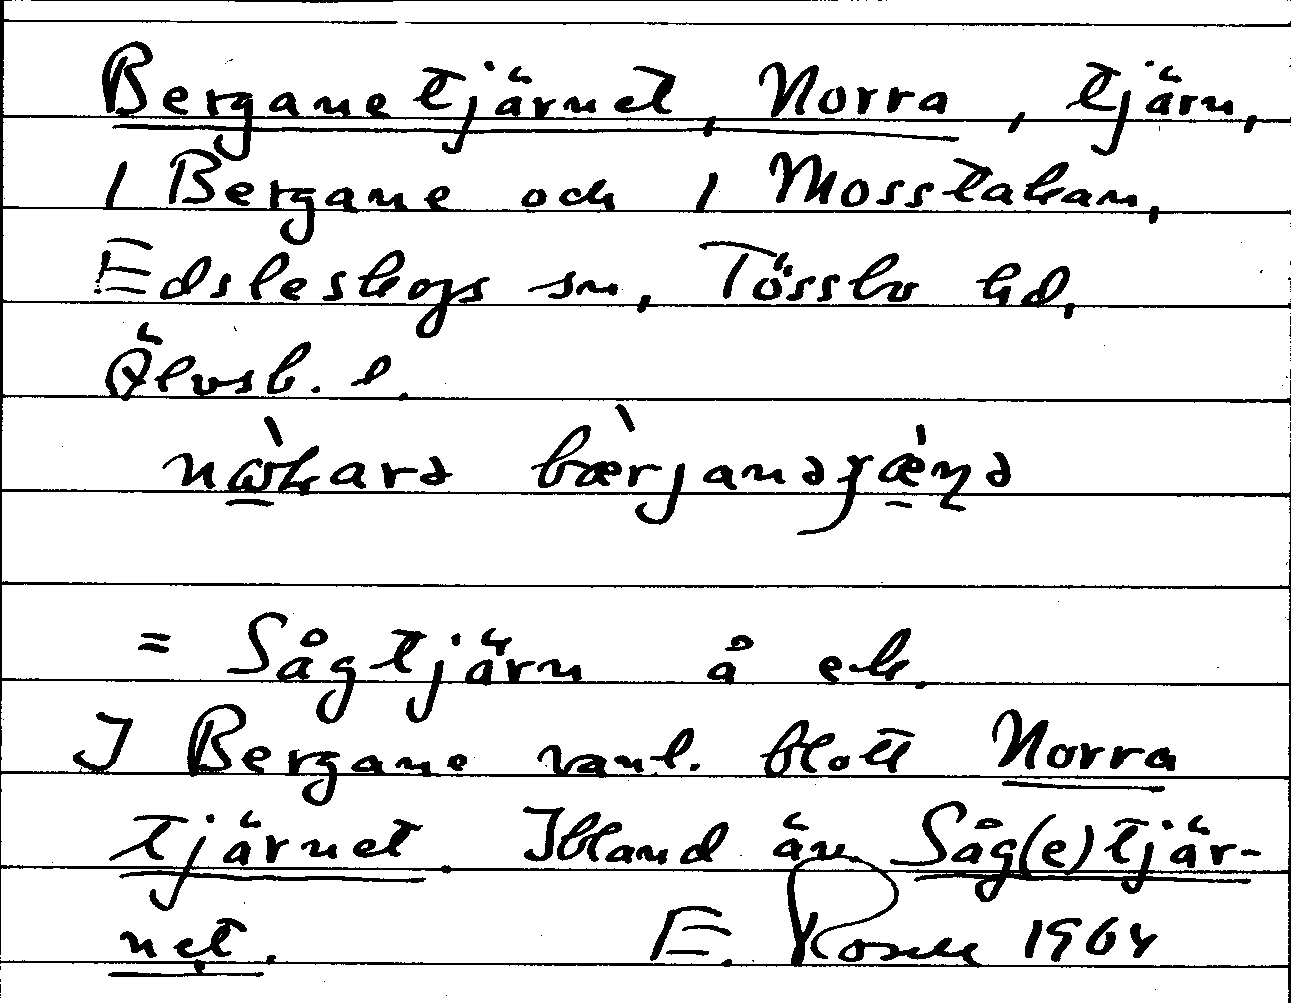 Berganetjärnet, Norra, tjärn,
1 Bergane och 1 Mosstakan,
Edsleskogs sn, Tössbo hd,
Älvsb. l.
bærjanə
= Sågtjärn å ek.
I Bergane vanl. blott Norra
tjärnet. Ibland äv. Såg(e)tjär-
net. E. Rosell 1964